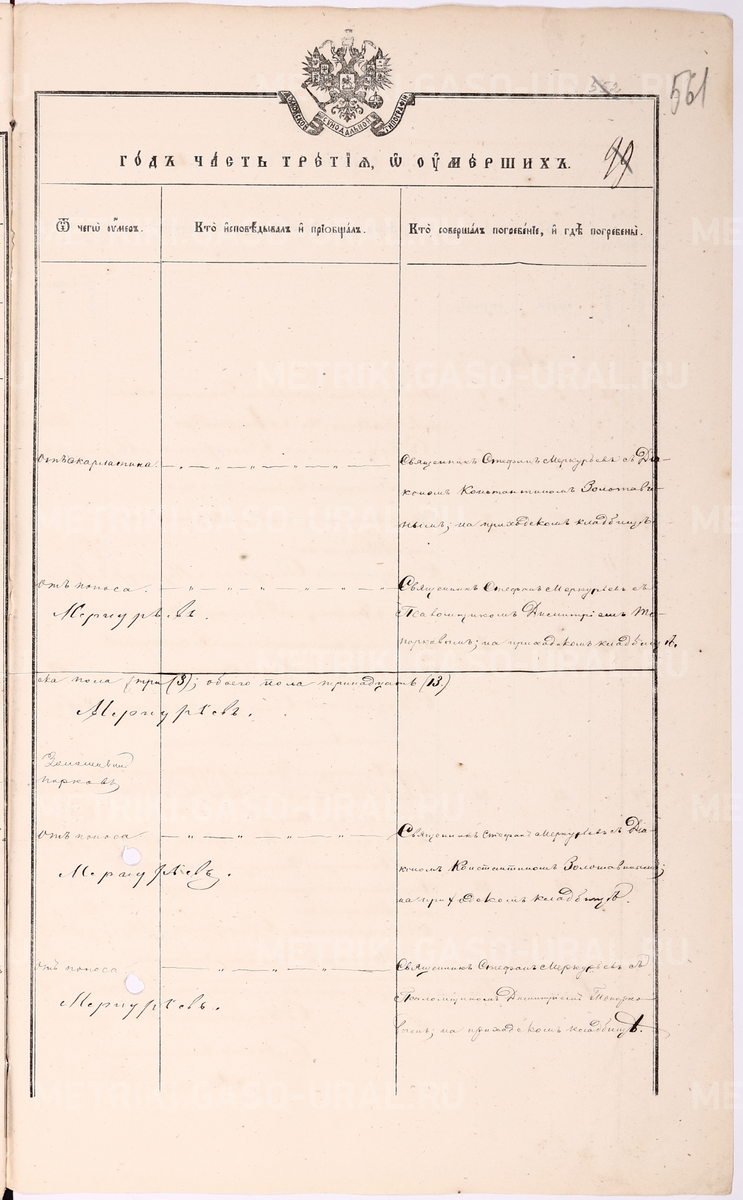 561
МОСКОВСКОЙ СУНОДАЛЬНОЙ ТИПОГРАФІИ
ГОДЪ ЧАСТЬ ТРЕТІЯ, Ѡ ОУМЕРШИХЪ.
99
Ѿ чегѡ оумеръ.
Кто исповѣдывалъ и пріобщалъ.
Кто совершалъ погребеніе, и гдѣ погребены.
отъ скарлатина.
Священникъ Стефанъ Меркурьевъ съ Діа-
кономъ Константиномъ Золотави-
нымъ; на приходскомъ кладбищѣ
отъ поноса.
Священникъ Стефанъ Меркурьевъ съ
Меркурьевъ.
Псаломщикомъ Димитріемъ То-
порковымъ; на приходскомъ кладбищѣ.
ска пола три (3); обоего пола тринадцать (13)
Меркурьевъ.
Золотавин
порковъ
отъ поноса
Священникъ Стефанъ Меркурьевъ съ Діа-
Меркурьевъ.
кономъ Константиномъ Золотавинымъ;
на приходскомъ кладбищѣ.
отъ поноса
Священникъ Стефанъ Меркурьевъ съ
Меркурьевъ.
Псаломщикомъ Димитріемъ Топорко-
вымъ; на приходскомъ кладбищѣ.
METRIKI.GASO-URAL.RU